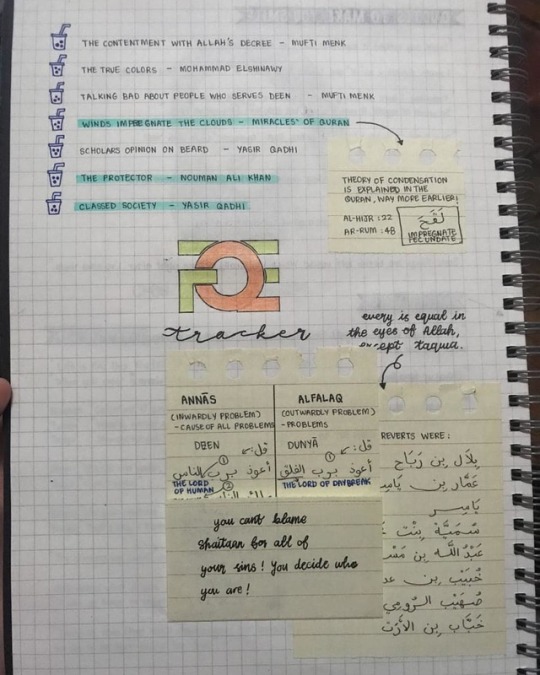 THE CONTENTMENT WITH ALLAH'S DECREE - MUFTI MENK
THE TRUE COLORS - MOHAMMAD ELSHINAWY
TALKING BAD ABOUT PEOPLE WHO SERVES DEEN - MUFTI MENK
WINDS IMPREGNATE THE CLOUDS - MIRACLES' OF QURAN
SCHOLARS OPINION ON BEARD - YASIR QADHI
THE PROTECTOR - NOUMAN ALI KHAN
CLASSED SOCIETY - YASIR QADHI
THEORY OF CONDENSATION
IS EXPLAINED IN THE
QURAN, WAY MORE EARLIER!
AL-HIJR :22
AR-RUM :48
لَقَحَ
IMPREGNATE
FECUNDATE
tracker
every is equal in
the eyes of Allah,
except taqwa.
ANNĀS
(INWARDLY PROBLEM)
-CAUSE OF ALL PROBLEMS
DEEN
قل:
أعوذ برب الناس
THE LORD
OF HUMAN
ALFALAQ
(OUTWARDLY PROBLEM)
-PROBLEMS
DUNYĀ
قل:
أعوذ برب الفلق
THE LORD OF DAYBREAK
you cant blame
shaitaan for all of
your sins! You decide who
you are!
REVERTS WERE:
بِلَال بِن رَبَاح
عَمَّار بِن
يَاسِر
سُمَيَّة بِنْت
عَبْدُ اللَّه بِن
خُبَيْب بِن
صُهَيْب الرُّومِي
خَبَّاب بِن الأَرَتّ